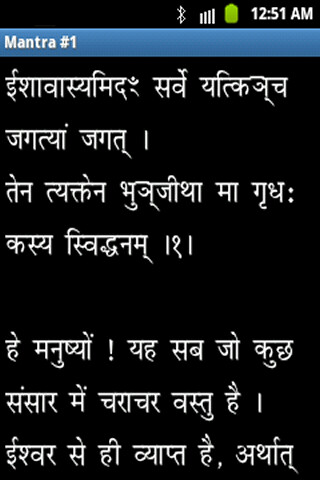 12:51 AM
Mantra #1
ईशावास्यमिदꣳ सर्वे यत्किञ्च
जगत्यां जगत् ।
तेन त्यक्तेन भुञ्जीथा मा गृधः
कस्य स्विद्धनम् ।१।
हे मनुष्यों ! यह सब जो कुछ
संसार में चराचर वस्तु है ।
ईश्वर से ही व्याप्त है, अर्थात्